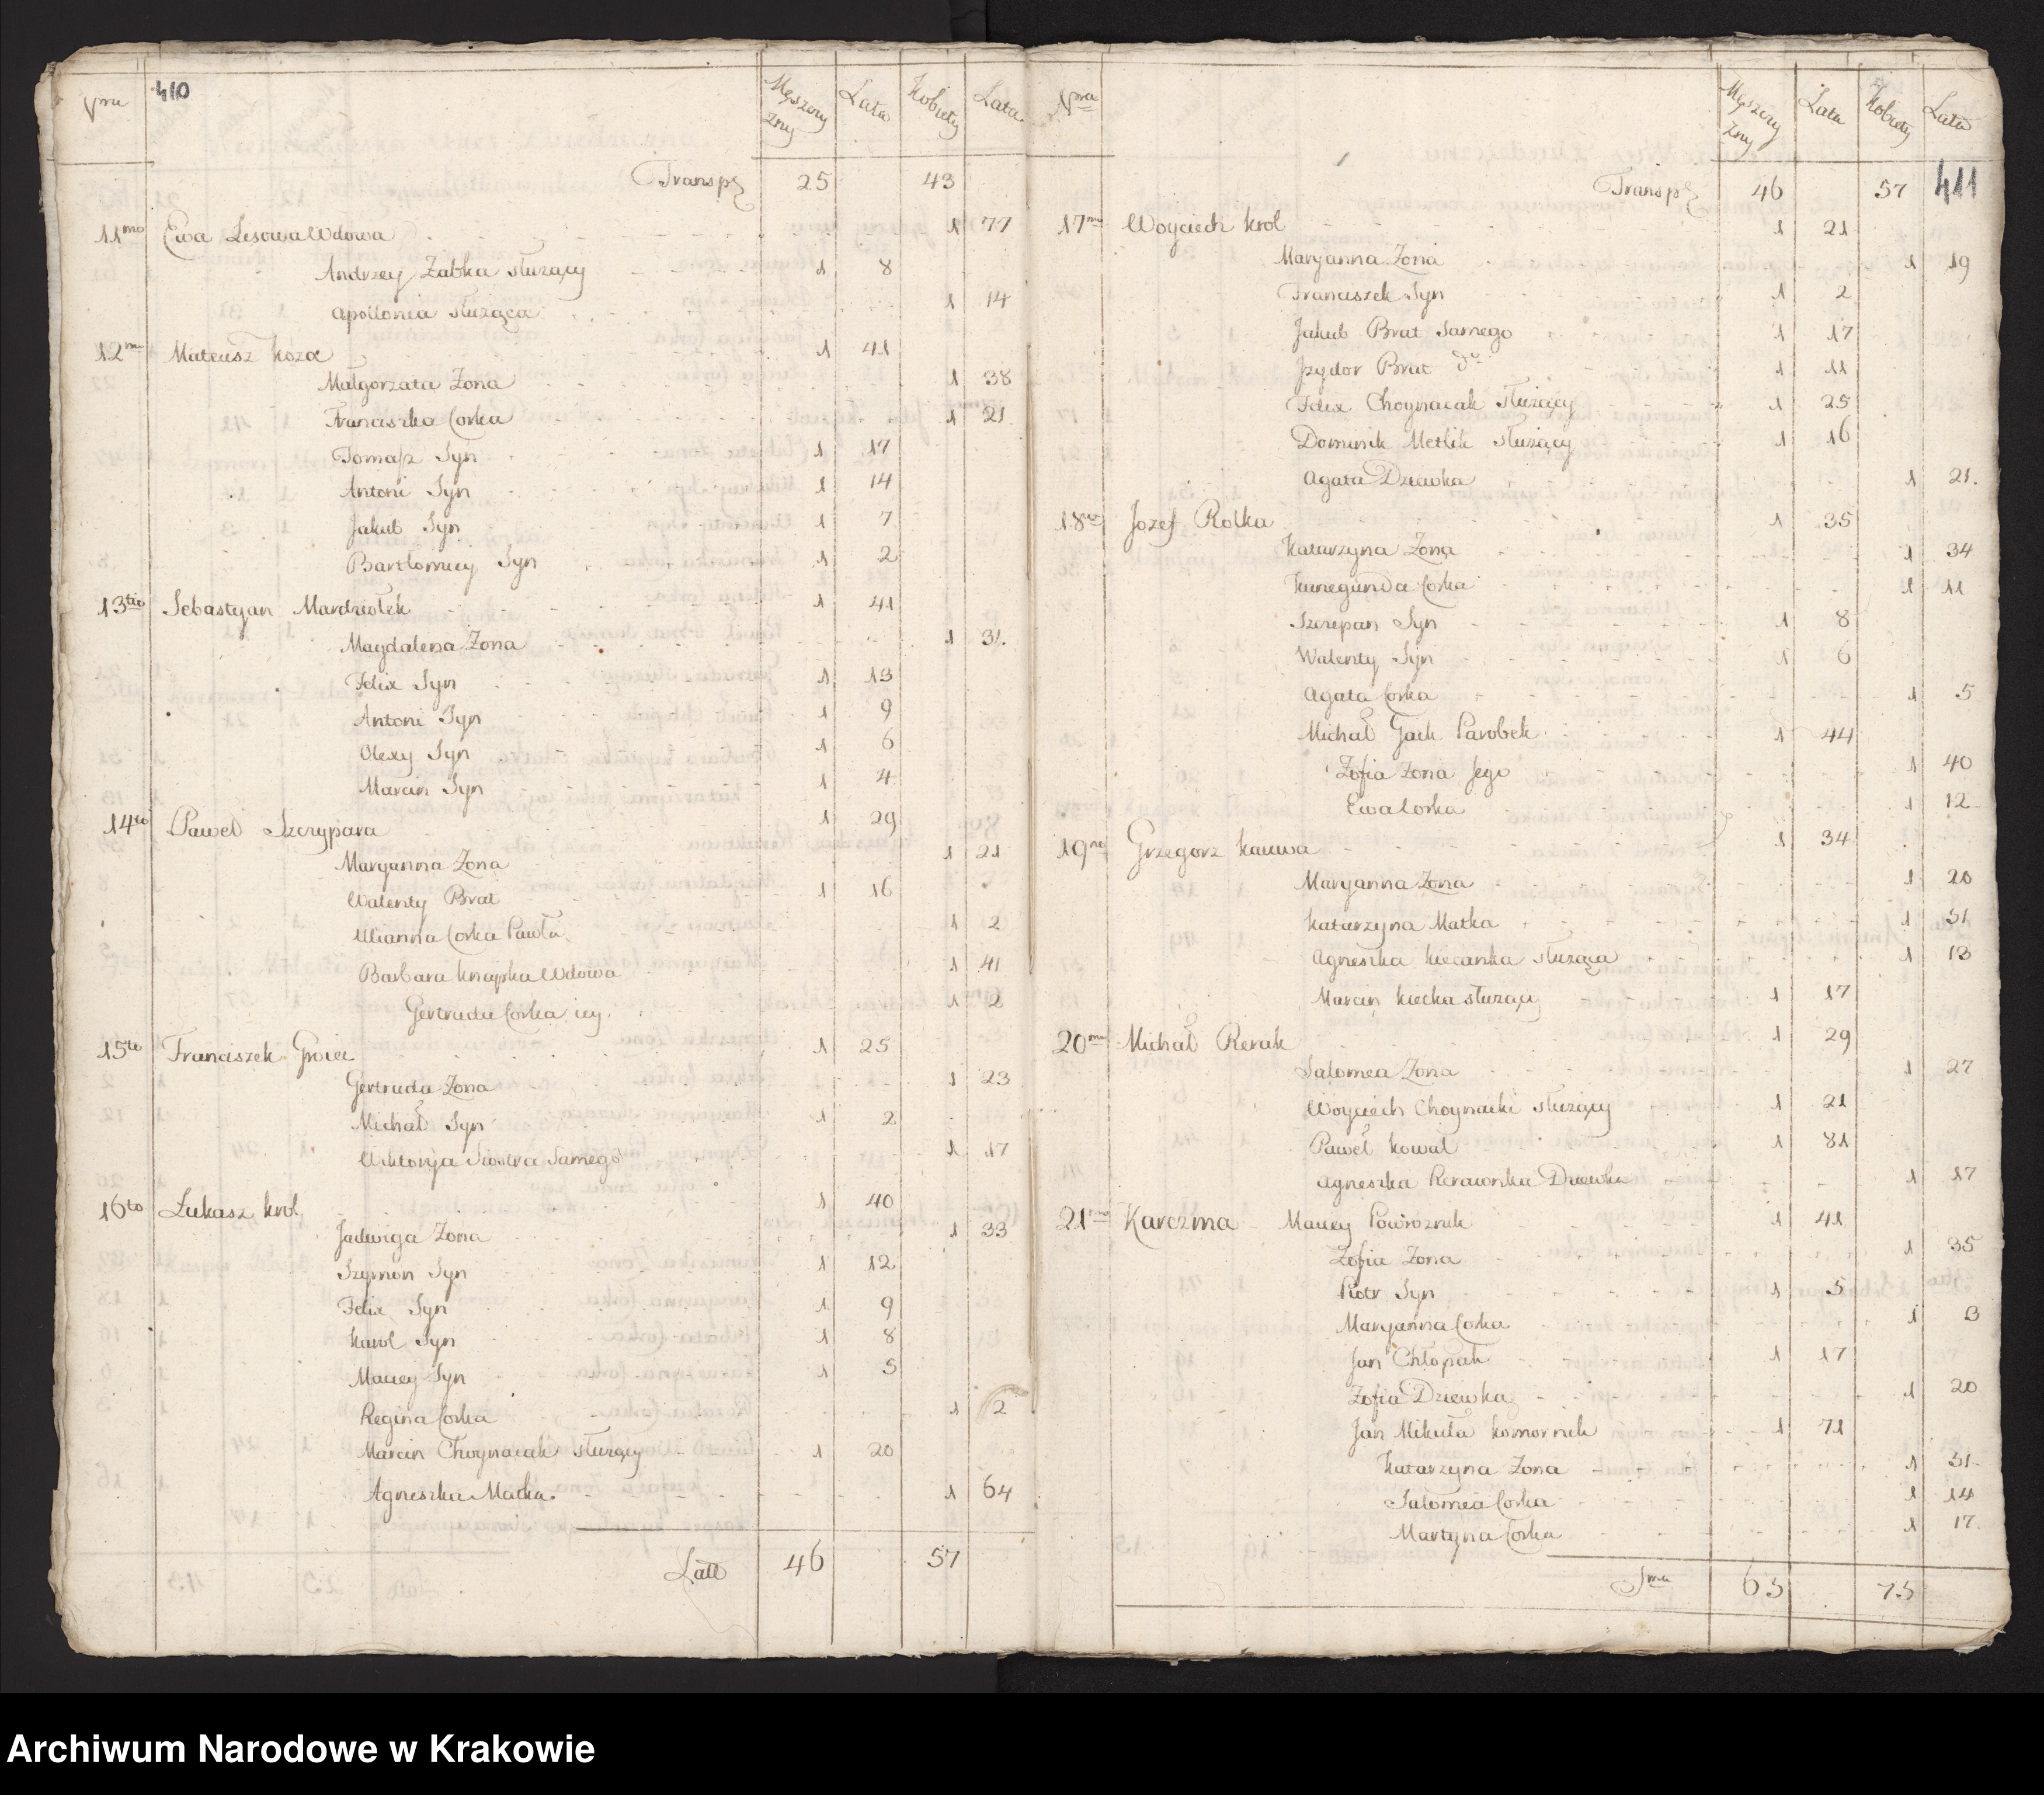 410
Nra Mężczyzny Lata Kobiety Lata
Transp 25 43
11mo Ewa Lisowa Wdowa 1 77
Andrzey Zabka służący 1 8
Apollonia służąca 1 14
12mo Mateusz Koza 1 41
Małgorzata Zona 1 38
Franciszka Corka 1 21
Tomasz Syn 1 17
Antoni Syn 1 14
Jakub Syn 1 7
Bartłomiey Syn 1 2
13tio Sebastyan Mardziołek 1 41
Magdalena Zona 1 31.
Felix Syn 1 13
Antoni Syn 1 9
Olexy Syn 1 6
Marcin Syn 1 4
14to Paweł Szczypara 1 29
Maryanna Zona 1 21
Walenty Brat 1 16
Ulianna Corka Pawła 1 2
Barbara Knapka Wdowa 1 41
Gertruda Corka iey. 1 2
15to Franciszek 1 25
Gertruda Zona 1 23
Michał Syn 1 2
Wiktorya Siostra Samego 1 17
16to Łukasz Krol 1 40
Jadwiga Zona 1 33
Szymon Syn 1 12
Felix Syn 1 9
Karol Syn 1 8
Maciey Syn 1 5
Regina Corka 1 2
Marcin Choynacak służący 1 20
Agnieszka Matka 1 64
Latt 46 57
Nra Mężczyzny Lata Kobiety Lata
411
Transp 46 57
17mo Woyciech Krol 1 21
Maryanna Zona 1 19
Franciszek Syn 1 2
Jakub Brat Samego 1 17
Jzydor Brat do 1 11
Felix Choynacak Służący 1 25
Dominik Metlik służący 1 16
Agata Dziewka 1 21.
18vo Jozef Rolka 1 35
Katarzyna Zona 1 34
Kunegunda Corka 1 11
Szczepan Syn 1 8
Walenty Syn 1 6
Agata Corka 1 5
Michał Gack Parobek 1 44
Zofia Zona Jego 1 40
Ewa Corka 1 12
19no Grzegorz 1 34
Maryanna Zona 1 20
Katarzyna Matka 1 51
Agnieszka Kiecanka służąca 1 13
Marcin Kiecka służący 1 17
20mo Michał Rerak 1 29
Salomea Zona 1 27
Woyciech Choynacki służący 1 21
Paweł Kowal 1 81
Agnieszka Dziewka 1 17
21mo Karczma Maciey Powroznik 1 41
Zofia Zona 1 35
Piotr Syn 1 5
Maryanna Corka 1 3
Jan Chłopak 1 17
Zofia Dziewka 1 20
Jan Mikuła Komornik 1 71
Katarzyna Zona 1 51
Salomea Corka 1 14
Martyna Corka 1 17.
Sma 65 75
Archiwum Narodowe w Krakowie